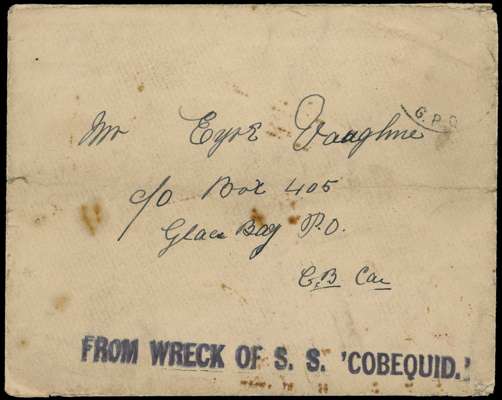 G. P. O
Mr Eyre Vaughne
c/o Box 405
Glace Bay P.O.
C,B Can
FROM WRECK OF S. S. 'COBEQUID.'